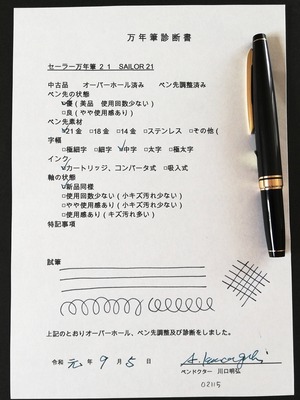 万年筆診断書
セーラー万年筆２１ SAILOR 21
中古品 オーバーホール済み ペン先調整済み
ペン先の状態
☑優(美品 使用回数少ない)
□良(やや使用感あり)
ペン先素材
☑21金 □18金 □14金 □ステンレス □その他(
字幅
□極細字 □細字 ☑中字 □太字 □極太字
インク
☑カートリッジ、コンバータ式 □吸入式
軸の状態
☑新品同様
□使用回数少ない(小キズ汚れ少ない)
□やや使用感あり(小キズ汚れ少ない)
□使用感あり(キズ汚れ多い)
特記事項
試筆
上記のとおりオーバーホール、ペン先調整及び診断をしました。
令和 元 年 9 月 5 日
ペンドクター 川口明弘
02115